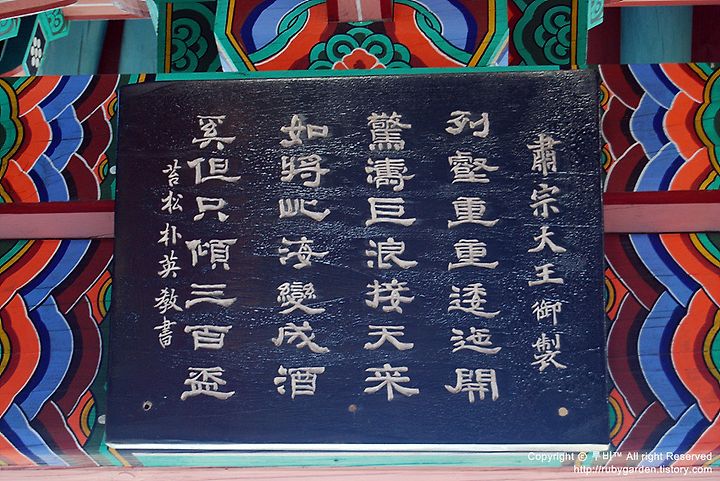 肅宗大王御製
列壑重重逶迤開
驚濤巨浪接天来
如將此海變成酒
奚但只傾三百盃
苔松朴英敎書
Copyright ⓒ 루비™ All right Reserved
http://rubygarden.tistory.com